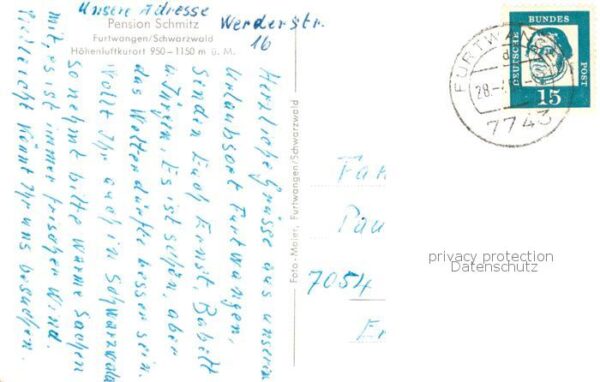 unsere Adresse
Pension Schmitz
Werderstr.
16
Furtwangen/Schwarzwald
Höhenluftkurort 950–1150 m ü. M.
Herzliche Grüsse aus unserem
Urlaubsort Furtwangen,
Senden Euch Ernst, Babett
u. Jürgen. Es ist schön, aber
das Wetter dürfte besser sein.
Wollt Ihr auch in Schwarzwald
So nehmt bitte warme Sachen
mit, es ist immer frischer Wind.
Vielleicht könnt Ihr uns besuchen.
Foto-Maier, Furtwangen/Schwarzwald
DEUTSCHE BUNDES POST
15
FURTWANGEN
28.-
7743
Fam
Pau
7054
privacy protection
Datenschutz